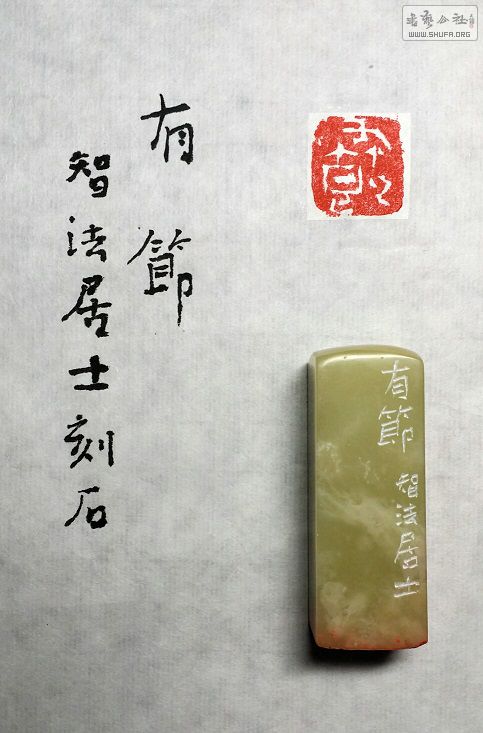 有節
智法居士刻石
有節
智法居士
書藝公社
WWW.SHUFA.ORG